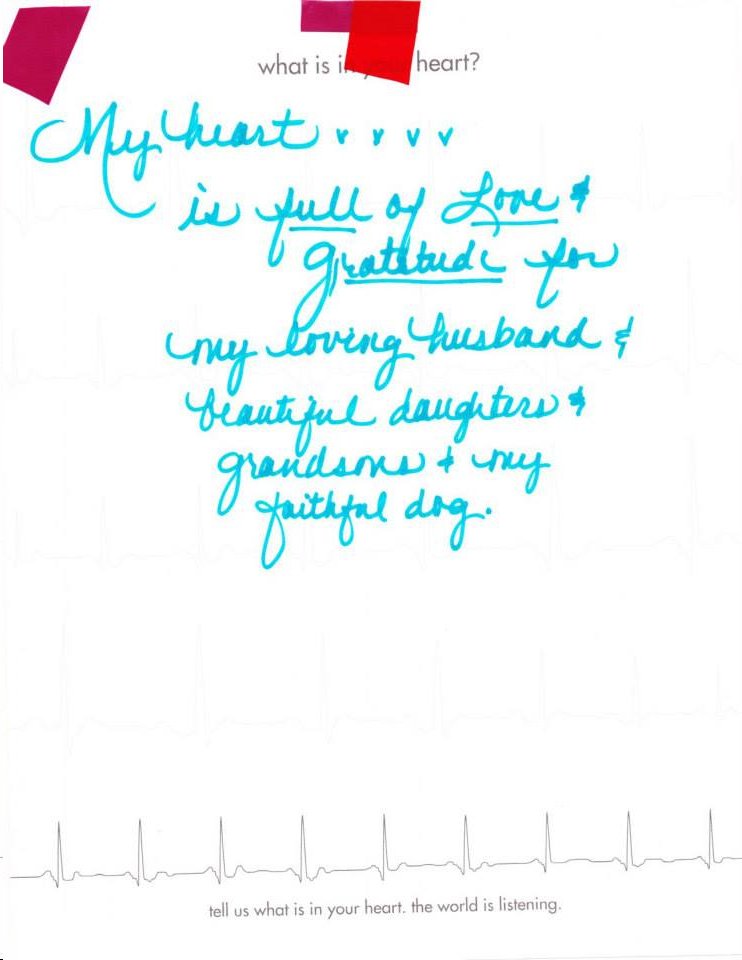 what is in your heart?
My heart
is full of Love &
gratitude for
my loving husband &
beautiful daughters &
grandsons & my
faithful dog.
tell us what is in your heart. the world is listening.